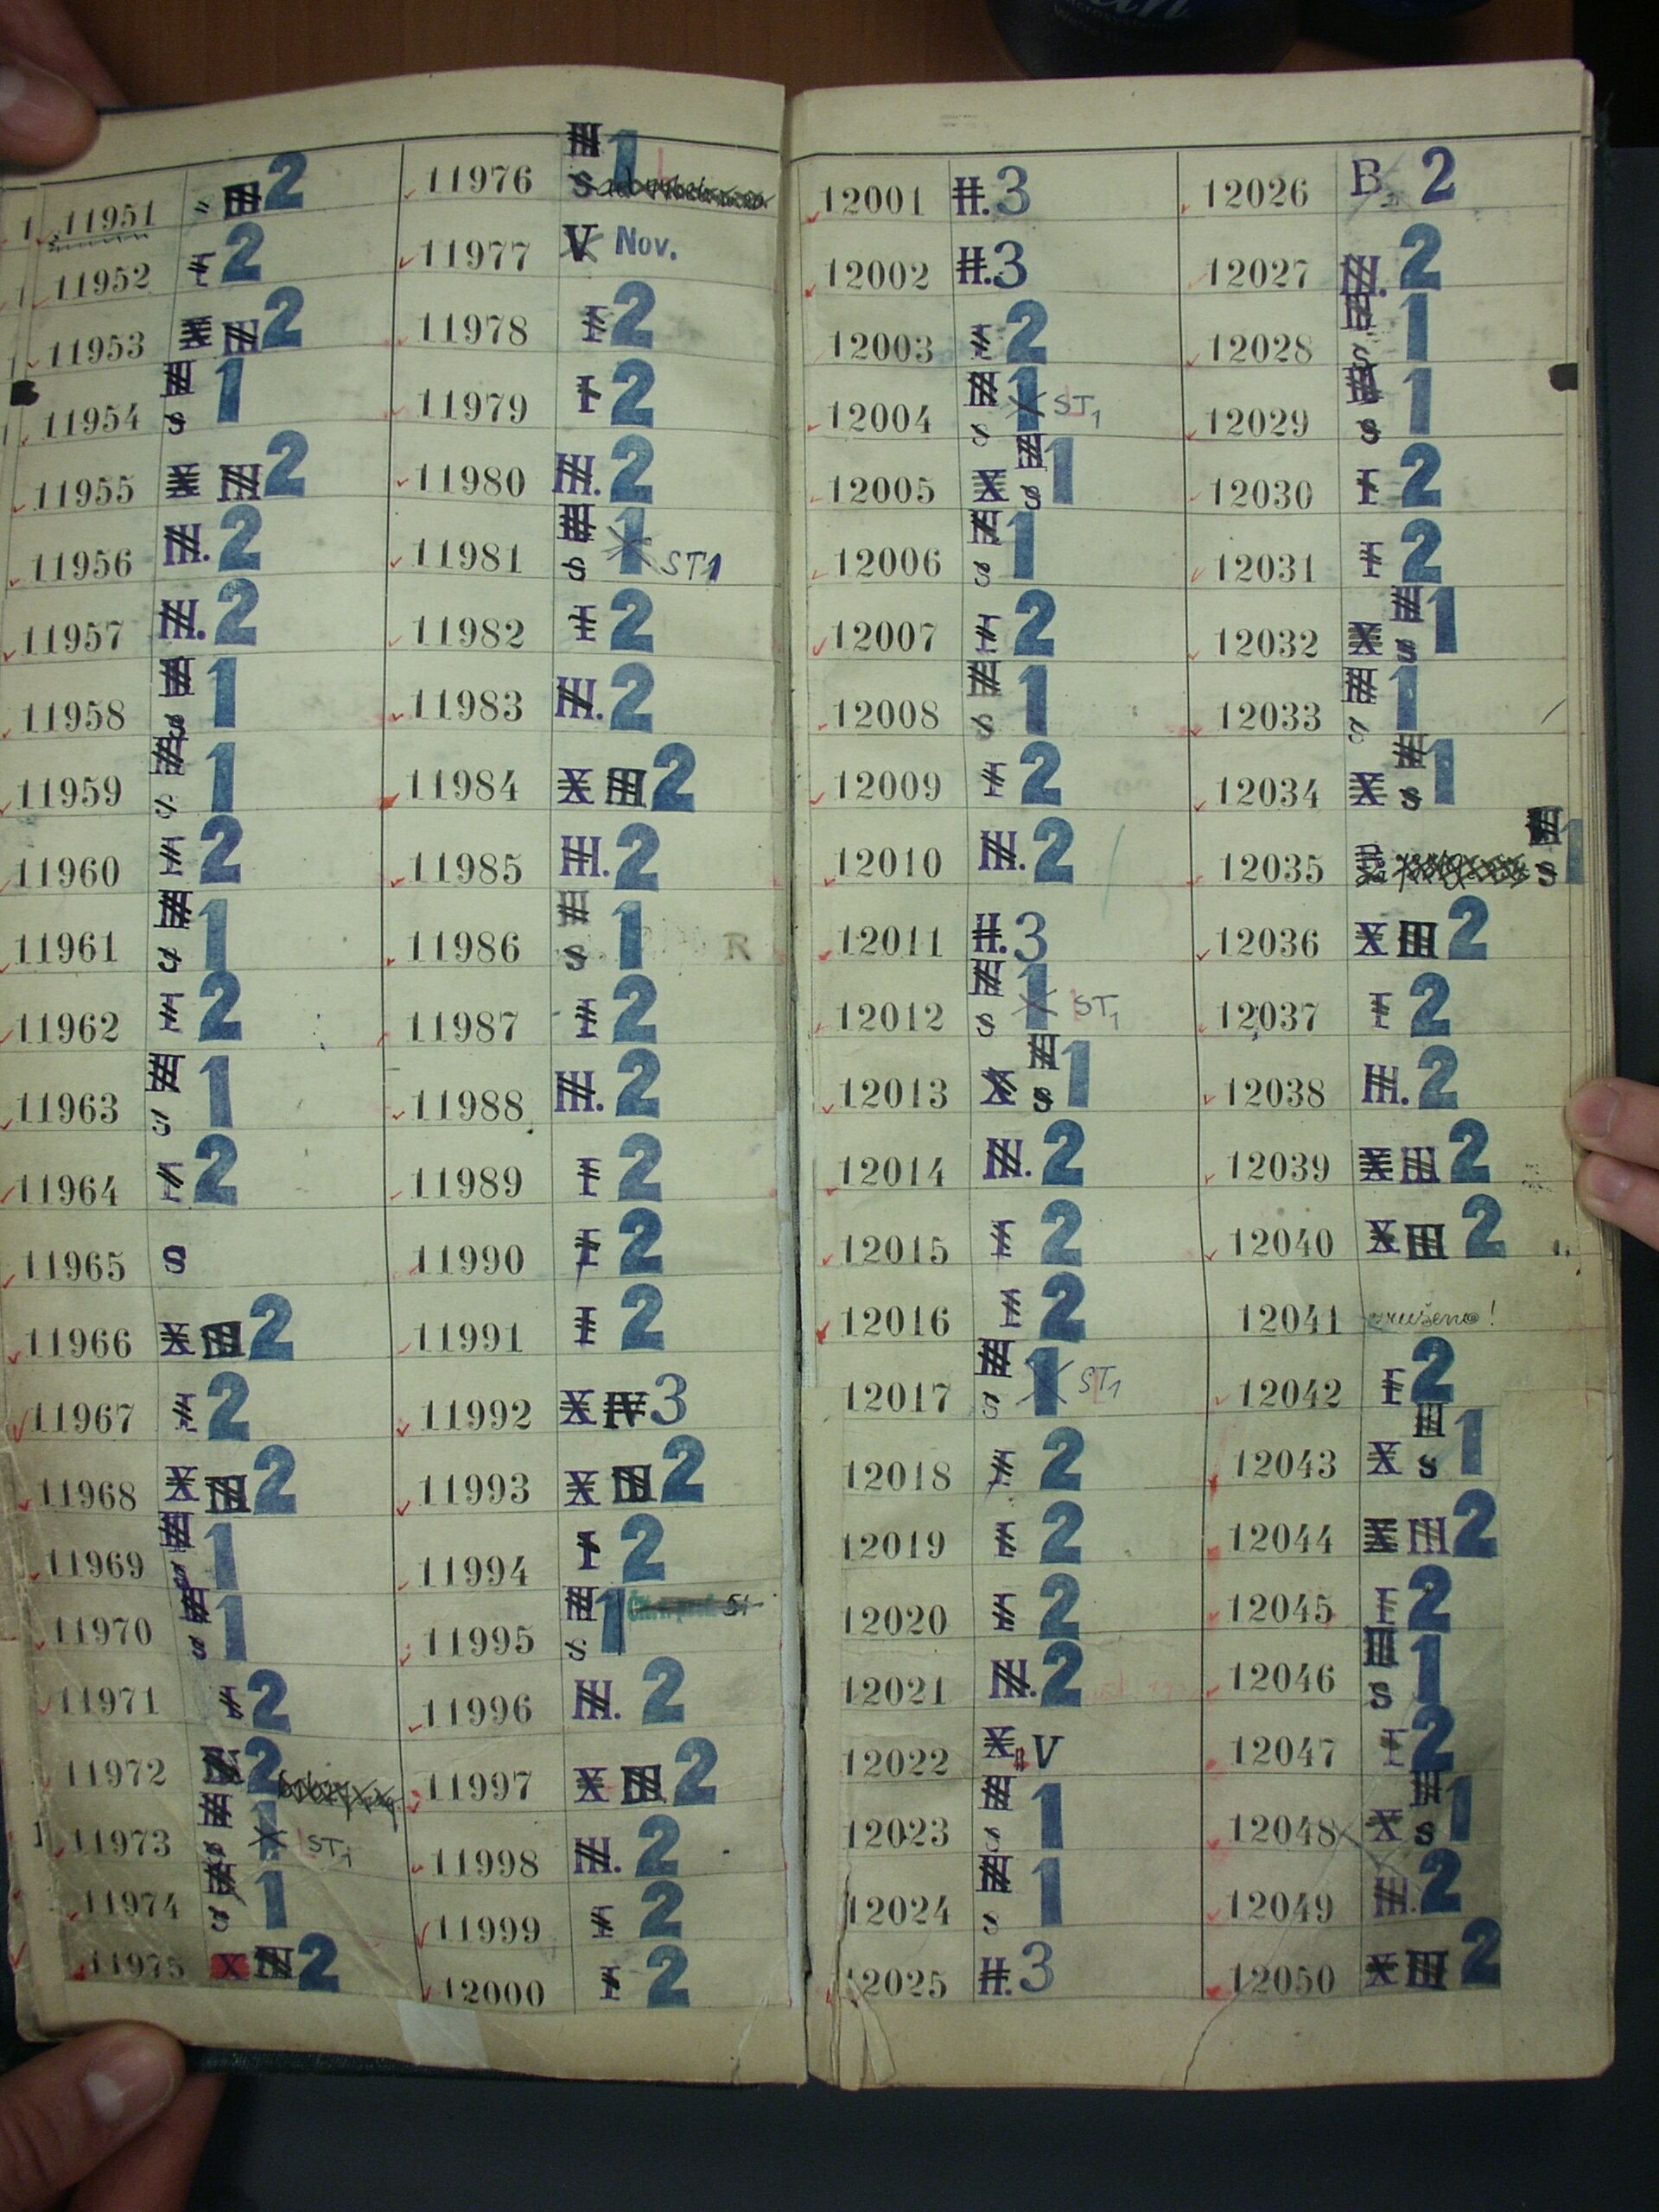 11951 III 2
11952 I 2
11953 X III 2
11954 III S 1
11955 X III 2
11956 III. 2
11957 III. 2
11958 III S 1
11959 III S 1
11960 I 2
11961 III S 1
11962 I 2
11963 III S 1
11964 I 2
11965 S
11966 X III 2
11967 I 2
11968 X III 2
11969 III S 1
11970 III S 1
11971 I 2
11972 2
11973 III S 1 ST1
11974 III S 1
11975 X III 2
11976 III S 1
11977 V Nov.
11978 I 2
11979 I 2
11980 III. 2
11981 III S 1 ST1
11982 I 2
11983 III. 2
11984 X III 2
11985 III. 2
11986 III S 1 R
11987 I 2
11988 III. 2
11989 I 2
11990 I 2
11991 I 2
11992 X IV 3
11993 X III 2
11994 I 2
11995 III S 1
11996 III. 2
11997 X III 2
11998 III. 2
11999 I 2
12000 I 2
12001 II. 3
12002 II. 3
12003 I 2
12004 III S 1 ST1
12005 X III S 1
12006 III S 1
12007 I 2
12008 III S 1
12009 I 2
12010 III. 2
12011 II. 3
12012 III S 1 ST1
12013 X III S 1
12014 III. 2
12015 I 2
12016 I 2
12017 III S 1 ST1
12018 I 2
12019 I 2
12020 I 2
12021 III. 2
12022 X V
12023 III S 1
12024 III S 1
12025 II. 3
12026 B 2
12027 III. 2
12028 III S 1
12029 III S 1
12030 I 2
12031 I 2
12032 X III S 1
12033 III S 1
12034 X III S 1
12035 III S 1
12036 X III 2
12037 I 2
12038 III. 2
12039 X III 2
12040 X III 2
12041 zrušeno!
12042 I 2
12043 X III S 1
12044 X III 2
12045 I 2
12046 III S 1
12047 I 2
12048 X III S 1
12049 III. 2
12050 X III 2